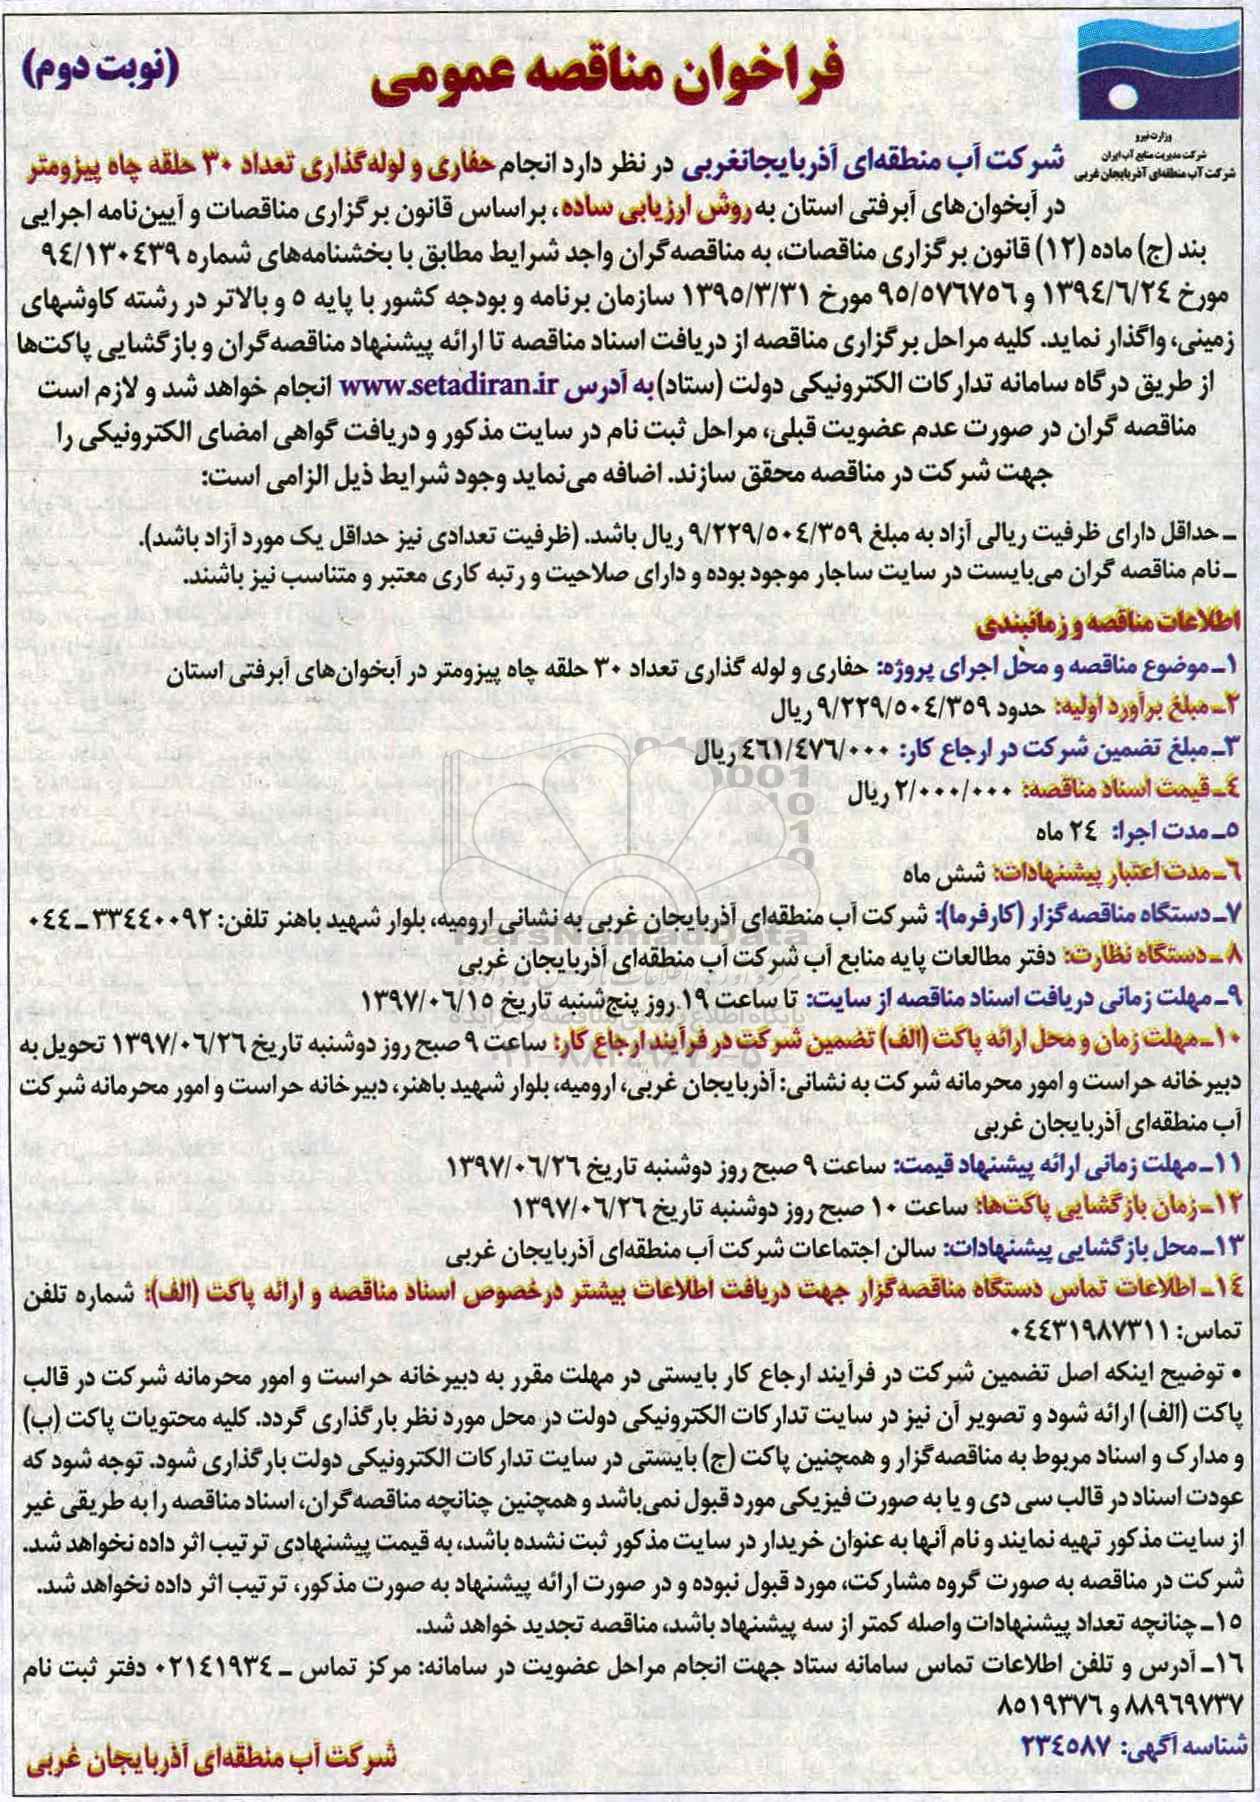 فراخوان مناقصه عمومی
(نوبت دوم)
وزارت نیرو
شرکت مدیریت منابع آب ایران
شرکت آب منطقه‌ای آذربایجان غربی
شرکت آب منطقه‌ای آذربایجانغربی در نظر دارد انجام حفاری و لوله‌گذاری تعداد ۳۰ حلقه چاه پیزومتر
در آبخوان‌های آبرفتی استان به روش ارزیابی ساده، براساس قانون برگزاری مناقصات و آیین‌نامه اجرایی
بند (ج) ماده (۱۲) قانون برگزاری مناقصات، به مناقصه‌گران واجد شرایط مطابق با بخشنامه‌های شماره ۹٤/۱۳۰٤۳۹
مورخ ۱۳۹٤/٦/۲٤ و ۹٥/٥۷٦۷٥٦ مورخ ۱۳۹٥/۳/۳۱ سازمان برنامه و بودجه کشور با پایه ٥ و بالاتر در رشته کاوشهای
زمینی، واگذار نماید. کلیه مراحل برگزاری مناقصه از دریافت اسناد مناقصه تا ارائه پیشنهاد مناقصه‌گران و بازگشایی پاکت‌ها
از طریق درگاه سامانه تدارکات الکترونیکی دولت (ستاد) به آدرس www.setadiran.ir انجام خواهد شد و لازم است
مناقصه گران در صورت عدم عضویت قبلی، مراحل ثبت نام در سایت مذکور و دریافت گواهی امضای الکترونیکی را
جهت شرکت در مناقصه محقق سازند. اضافه می‌نماید وجود شرایط ذیل الزامی است:
ـ حداقل دارای ظرفیت ریالی آزاد به مبلغ ۹/۲۲۹/٥۰٤/۳٥۹ ریال باشد. (ظرفیت تعدادی نیز حداقل یک مورد آزاد باشد).
ـ نام مناقصه گران می‌بایست در سایت ساجار موجود بوده و دارای صلاحیت و رتبه کاری معتبر و متناسب نیز باشند.
اطلاعات مناقصه و زمانبندی
۱ـ موضوع مناقصه و محل اجرای پروژه: حفاری و لوله گذاری تعداد ۳۰ حلقه چاه پیزومتر در آبخوان‌های آبرفتی استان
۲ـ مبلغ برآورد اولیه: حدود ۹/۲۲۹/٥۰٤/۳٥۹ ریال
۳ـ مبلغ تضمین شرکت در ارجاع کار: ٤٦۱/٤۷٦/۰۰۰ ریال
٤ـ قیمت اسناد مناقصه: ۲/۰۰۰/۰۰۰ ریال
٥ـ مدت اجرا: ۲٤ ماه
٦ـ مدت اعتبار پیشنهادات: شش ماه
۷ـ دستگاه مناقصه‌گزار (کارفرما): شرکت آب منطقه‌ای آذربایجان غربی به نشانی ارومیه، بلوار شهید باهنر تلفن: ۳۳٤٤۰۰۹۲ ـ ۰٤٤
ParsNamadData
۸ ـ دستگاه نظارت: دفتر مطالعات پایه منابع آب شرکت آب منطقه‌ای آذربایجان غربی
۹ـ مهلت زمانی دریافت اسناد مناقصه از سایت: تا ساعت ۱۹ روز پنج‌شنبه تاریخ ۱۳۹۷/۰٦/۱٥
۱۰ـ مهلت زمان و محل ارائه پاکت (الف) تضمین شرکت در فرآیند ارجاع کار: ساعت ۹ صبح روز دوشنبه تاریخ ۱۳۹۷/۰٦/۲٦ تحویل به
دبیرخانه حراست و امور محرمانه شرکت به نشانی: آذربایجان غربی، ارومیه، بلوار شهید باهنر، دبیرخانه حراست و امور محرمانه شرکت
آب منطقه‌ای آذربایجان غربی
۱۱ـ مهلت زمانی ارائه پیشنهاد قیمت: ساعت ۹ صبح روز دوشنبه تاریخ ۱۳۹۷/۰٦/۲٦
۱۲ـ زمان بازگشایی پاکت‌ها: ساعت ۱۰ صبح روز دوشنبه تاریخ ۱۳۹۷/۰٦/۲٦
۱۳ـ محل بازگشایی پیشنهادات: سالن اجتماعات شرکت آب منطقه‌ای آذربایجان غربی
۱٤ـ اطلاعات تماس دستگاه مناقصه‌گزار جهت دریافت اطلاعات بیشتر درخصوص اسناد مناقصه و ارائه پاکت (الف): شماره تلفن
تماس: ۰٤٤۳۱۹۸۷۳۱۱
• توضیح اینکه اصل تضمین شرکت در فرآیند ارجاع کار بایستی در مهلت مقرر به دبیرخانه حراست و امور محرمانه شرکت در قالب
پاکت (الف) ارائه شود و تصویر آن نیز در سایت تدارکات الکترونیکی دولت در محل مورد نظر بارگذاری گردد. کلیه محتویات پاکت (ب)
و مدارک و اسناد مربوط به مناقصه‌گزار و همچنین پاکت (ج) بایستی در سایت تدارکات الکترونیکی دولت بارگذاری شود. توجه شود که
عودت اسناد در قالب سی دی و یا به صورت فیزیکی مورد قبول نمی‌باشد و همچنین چنانچه مناقصه‌گران، اسناد مناقصه را به طریقی غیر
از سایت مذکور تهیه نمایند و نام آنها به عنوان خریدار در سایت مذکور ثبت نشده باشد، به قیمت پیشنهادی ترتیب اثر داده نخواهد شد.
شرکت در مناقصه به صورت گروه مشارکت، مورد قبول نبوده و در صورت ارائه پیشنهاد به صورت مذکور، ترتیب اثر داده نخواهد شد.
۱٥ـ چنانچه تعداد پیشنهادات واصله کمتر از سه پیشنهاد باشد، مناقصه تجدید خواهد شد.
۱٦ـ آدرس و تلفن اطلاعات تماس سامانه ستاد جهت انجام مراحل عضویت در سامانه: مرکز تماس ـ ۰۲۱٤۱۹۳٤ دفتر ثبت نام
۸۸۹٦۹۷۳۷ و ۸٥۱۹۳۷٦
شناسه آگهی: ۲۳٤٥۸۷
شرکت آب منطقه‌ای آذربایجان غربی